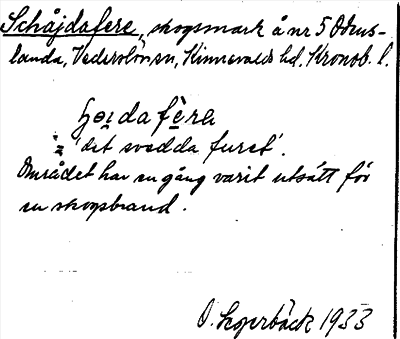 Schåjdafere, skogsmark å nr 5 Odens-
landa, Vederslövs sn, Kinnevalds hd. Kronob. l.
hǫi̯dafèra
'det svedda furet'.
Området har en gång varit utsått för
en skogsbrand.
1933